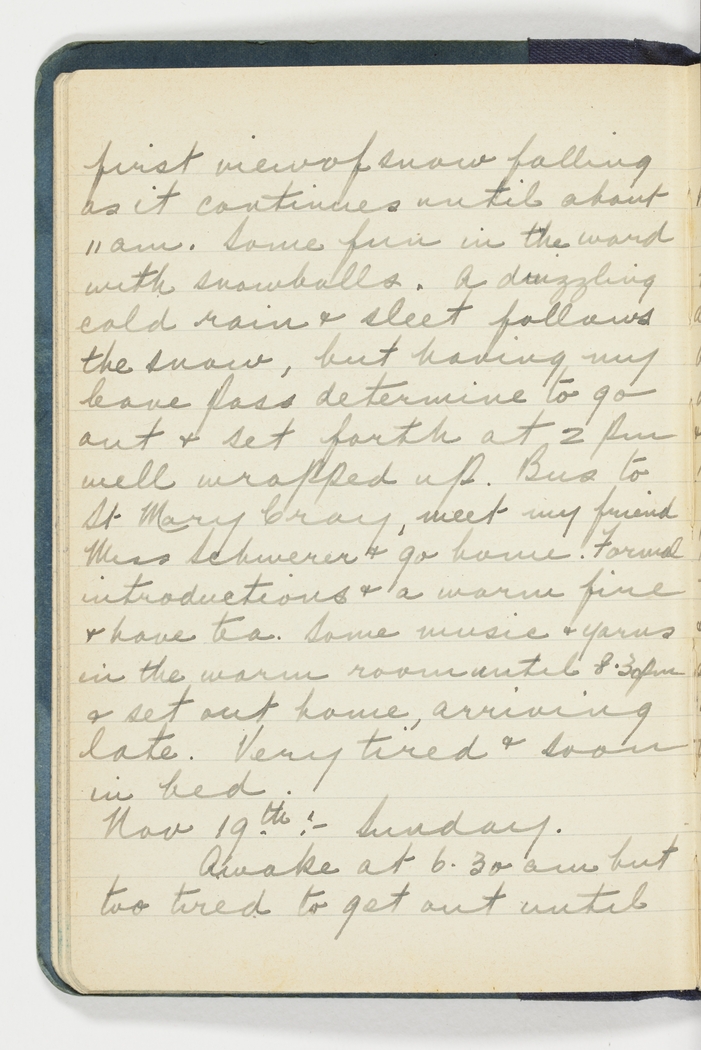 first view of snow falling
as it continues until about
11 am. Some fun in the ward
with snowballs. A drizzling
cold rain & sleet follows
the snow, but having my
leave pass determine to go
out & set forth at 2 pm
well wrapped up. Bus to
St Mary Cray, meet my friend
Miss Schwerer & go home. Formal
introductions & a warm fire
& have tea. Some music & yarns
in the warm room until 8.30pm
& set out home, arriving
late. Very tired & soon
in bed.
Nov 19th :- Sunday.
Awake at 6.30 am but
too tired to get out until